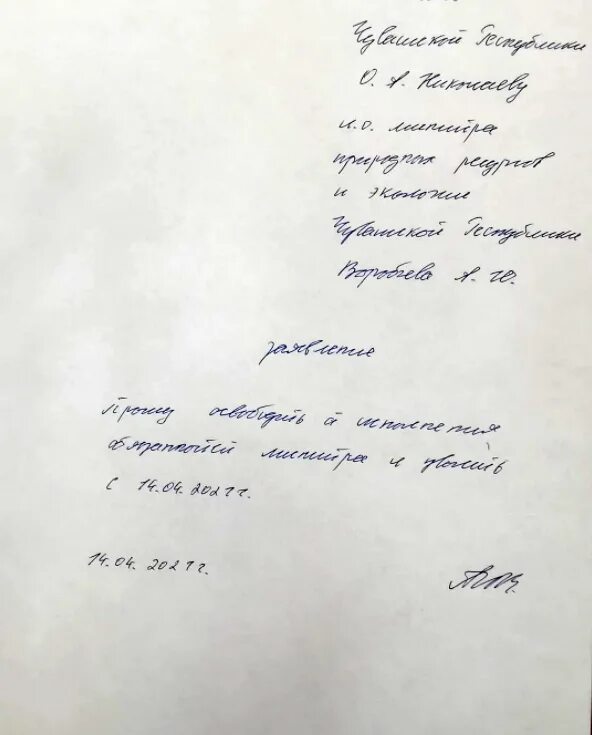 Чувашской Республики
О. А. Николаеву
и.о. министра
природных ресурсов
и экологии
Чувашской Республики
Воробьева А. Ю.
заявление
Прошу освободить от исполнения
обязанностей министра и уволить
с 14.04.2021 г.
14.04.2021 г.